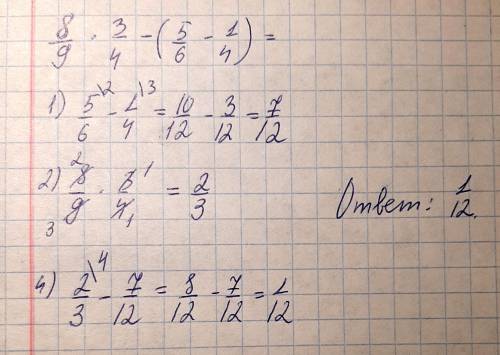 8/9 · 3/4 - (5/6 - 1/4) =
1) 5/6 \2 - 1/4 \3 = 10/12 - 3/12 = 7/12
2) 8/9 · 3/4 = 2/3
Ответ: 1/12.
4) 2/3 \4 - 7/12 = 8/12 - 7/12 = 1/12